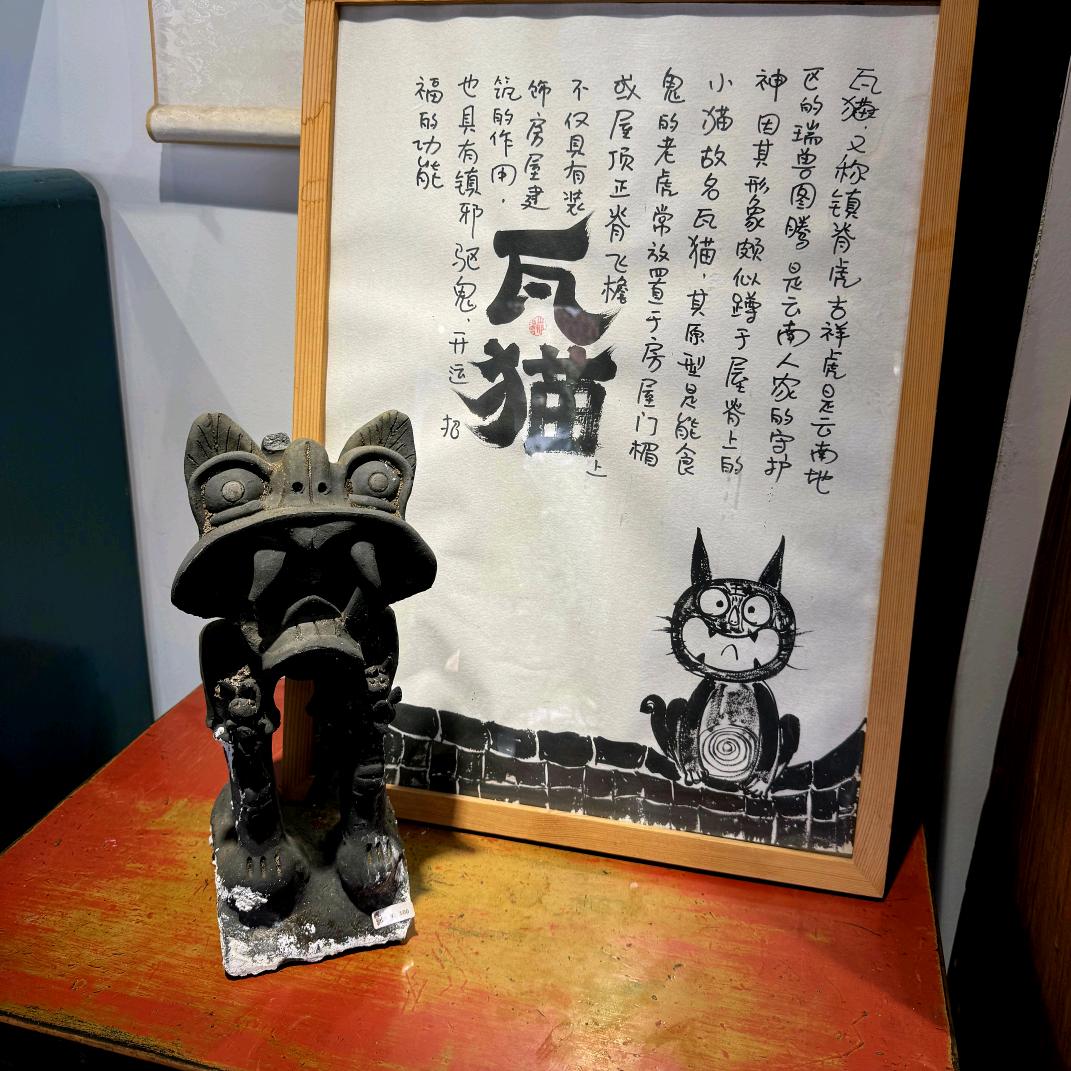 瓦猫,又称镇脊虎吉祥虎是云南地
区的瑞兽图腾是云南人家的守护
神因其形象颇似蹲于屋脊上的
小猫故名瓦猫,其原型是能食
鬼的老虎常放置于房屋门楣
或屋顶正脊飞檐上
不仅具有装
饰房屋建
筑的作用,
也具有镇邪驱鬼,开运招
福的功能
瓦猫